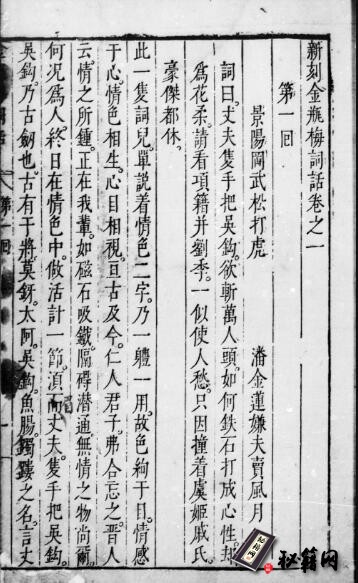 新刻金瓶梅詞話卷之一
第一回
景陽岡武松打虎　潘金蓮嫌夫賣風月
詞曰。丈夫隻手把吳鈎。欲斬萬人頭。如何鉄石打成心性。却
爲花柔。請看項籍并劉季。一似使人愁。只因撞着虞姬戚氏。
豪傑都休。
此一隻詞兒。單說着情色二字。乃一體一用。故色絢于目。情感
于心。情色相生。心目相視。亘古及今。仁人君子。弗合忘之。晋人
云。情之所鍾。正在我輩。如磁石吸鐵。隔碍潛通。無情之物尚爾。
何况爲人。終日在情色中。做活計一節。須而丈夫。隻手把吳鈎。
吳鈎。乃古劔也。古有干將莫釾。太阿。吳鈎。魚腸。躅𨇠之名。言丈
第一回
秘籍网